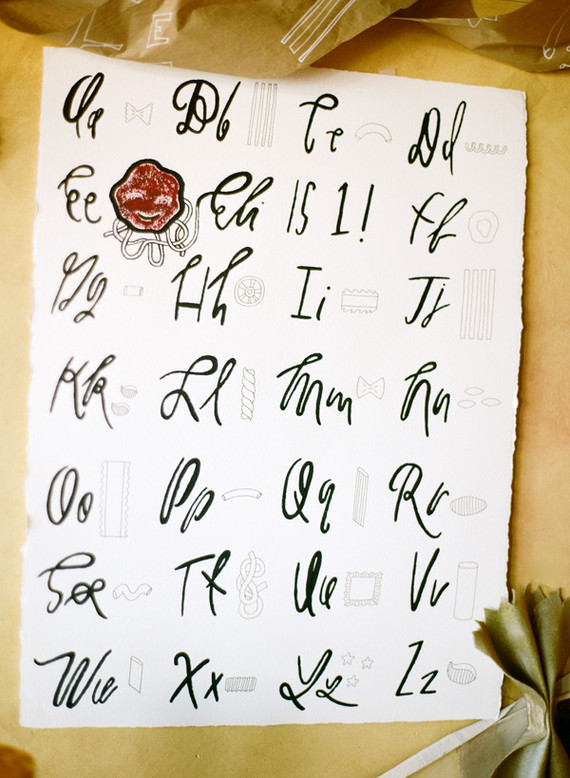 L E
Aa Bb Cc Dd
Ee Ehi IS 1! Ff
Gg Hh Ii Jj
Kk Ll Mm Nn
Oo Pp Qq Rr
Ss Tt Uu Vv
Ww Xx Yy Zz